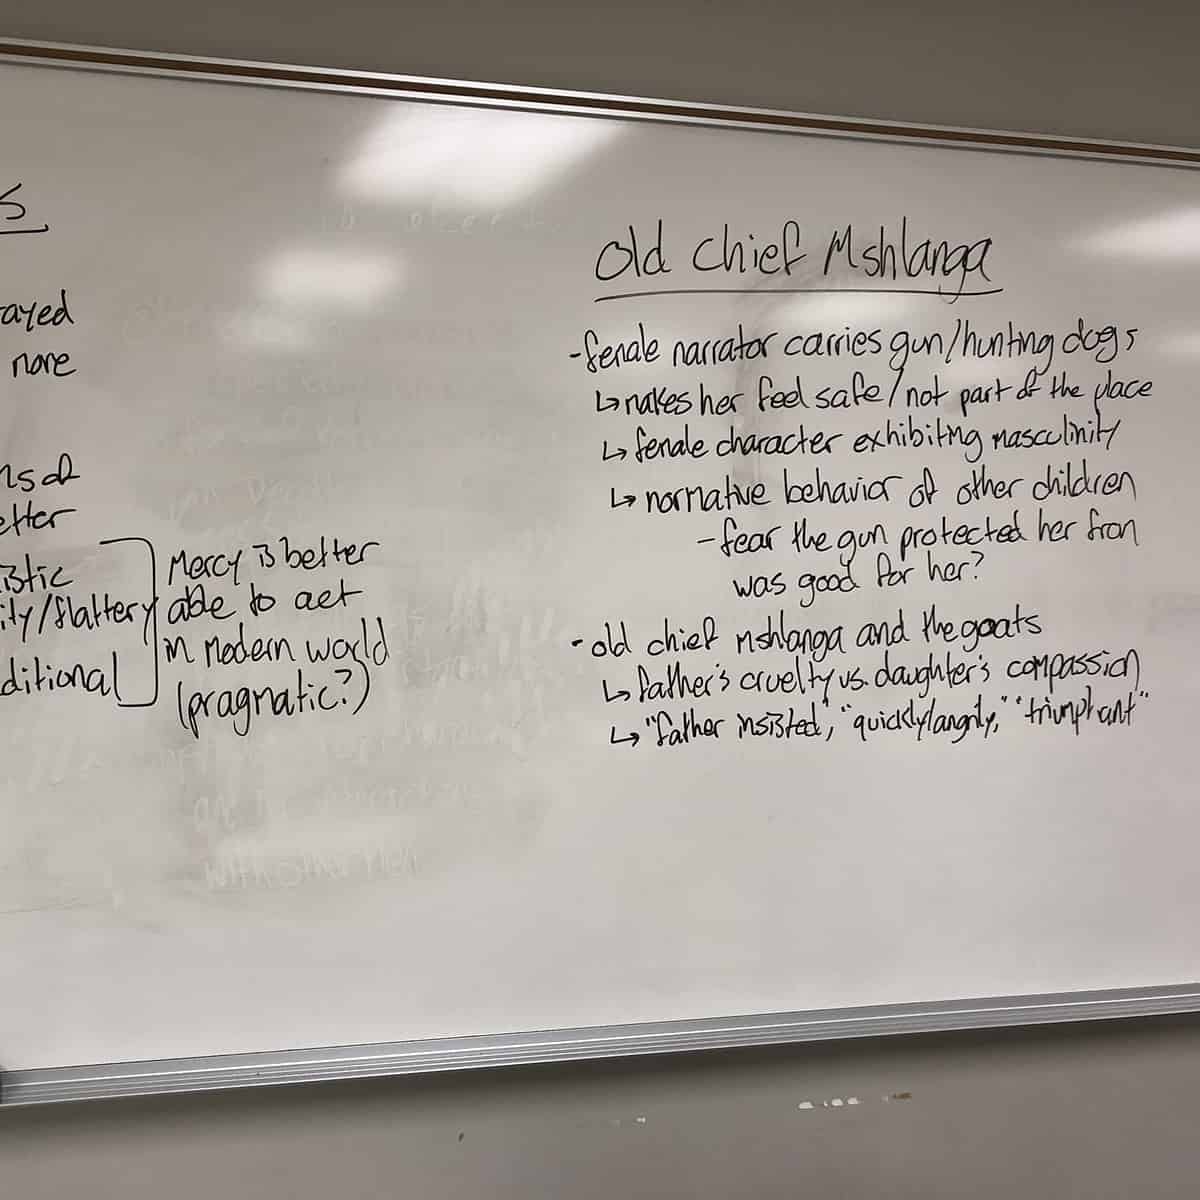 s
ayed
none
etter
istic
ity/flattery
ditional
Mercy is better
able to act
in modern world
(pragmatic?)
Old Chief Mshlanga
-female narrator carries gun/hunting dogs
↳makes her feel safe/not part of the place
↳ female character exhibiting masculinity
↳ normative behavior of other children
-fear the gun protected her from
was good for her?
-old chief mshlanga and the goats
↳ father's cruelty vs. daughter's compassion
↳ "father insisted", "quickly/angrily," "triumphant"
with other men